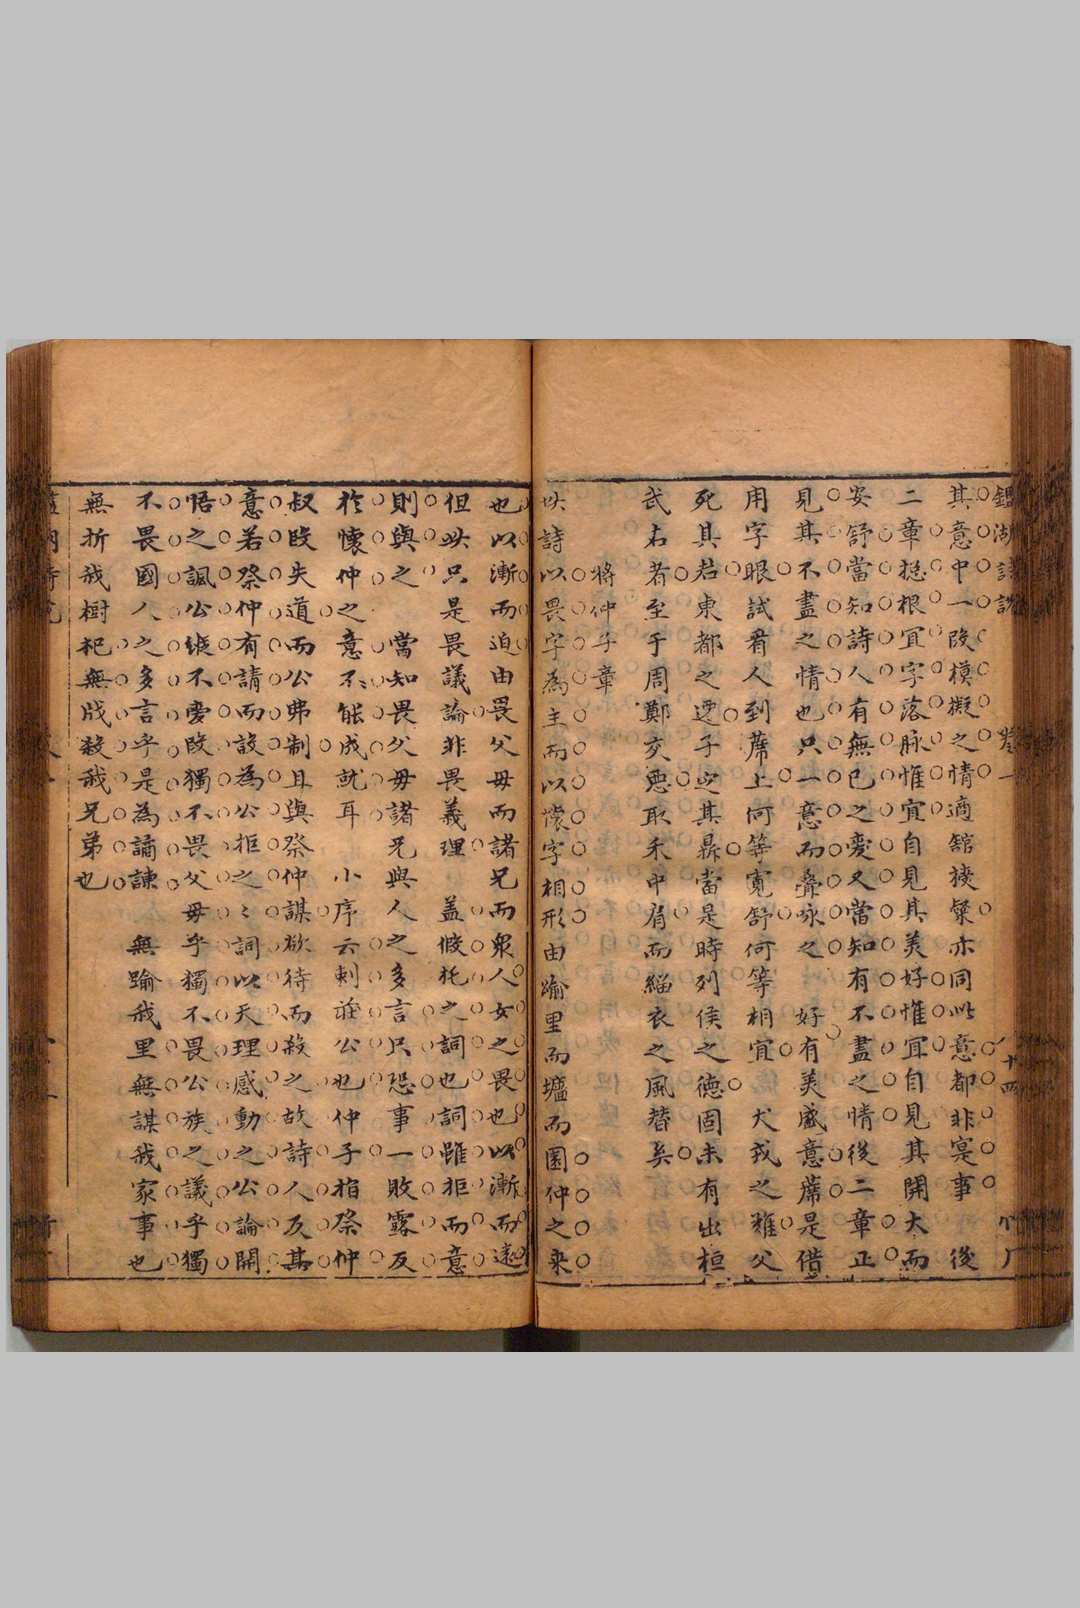 鑑湖詩說 卷一 十四
其意中一段模擬之情適舘授粲亦同此意都非寔事 後
二章揔根宜字落脉惟宜自見其美好惟宜自見其開大而
安舒當知詩人有無已之愛又當知有不盡之情後二章正
見其不盡之情也只一意而疊咏之 好有美盛意蓆是借
用字眼試看人到蓆上何等寬舒何等相宜 犬戎之難父
死其君東都之遷子定其鼎當是時列侯之德固未有出桓
武右者至于周鄭交惡取禾中肩而緇衣之風替矣
將仲子章
此詩以畏字為主而以懷字相形由踰里而墻而園仲之來
也以漸而迫由畏父母而諸兄而衆人女之畏也以漸而遠
但此只是畏議論非畏義理 盖假托之詞也詞雖拒而意
則與之 當知畏父母諸兄與人之多言只恐事一敗露反
於懷仲之意不能成就耳 小序云刺莊公也仲子指祭仲
叔段失道而公弗制且與祭仲謀欲待而殺之故詩人反其
意若祭仲有請而設為公拒之之詞以天理感動之公論開
悟之諷公縱不愛段獨不畏父母乎獨不畏公族之議乎獨
不畏國人之多言乎是為譎諫 無踰我里無謀我家事也
無折我樹杞無戕殺我兄弟也